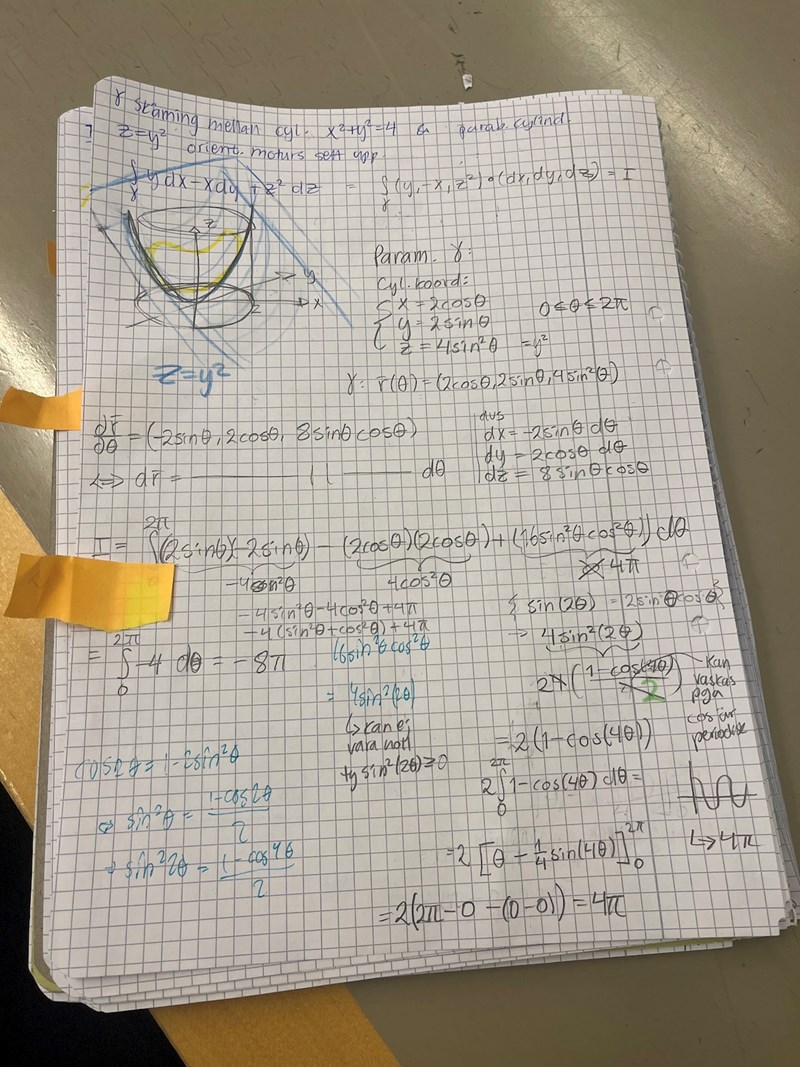 γ skärning mellan cyl. x²+y²=4 & parab.cylind.
z=y² orient. moturs sett upp
∫γ y dx - x dy + z² dz = ∫γ (y, -x, z²)•(dx, dy, dz) = I
z
y
x
2
z=y²
Param. γ:
Cyl.koord:
{ x = 2cosθ
y = 2sinθ 0≤θ≤2π
z = 4sin²θ = y²
γ: r̄(θ) = (2cosθ, 2sinθ, 4sin²θ)
dr̄/dθ = (-2sinθ, 2cosθ, 8sinθ cosθ)
⇔ dr̄ = ——— || ——— dθ
dvs
dx = -2sinθ dθ
dy = 2cosθ dθ
dz = 8sinθ cosθ
I = ∫₀^2π ((2sinθ)(-2sinθ) - (2cosθ)(2cosθ) + (16sin²θcos²θ)) dθ
-4sin²θ 4cos²θ 4π
-4sin²θ-4cos²θ+4π
-4(sin²θ+cos²θ)+4π
= ∫₀^2π -4 dθ = -8π
16sin²θcos²θ
= 4sin²(2θ)
↳ kan ej
vara noll
ty sin²(2θ)≥0
{ sin(2θ) = 2sinθcosθ }
→ 4sin²(2θ)
24(1-cos(4θ)/2) 2
Kan
väskas
pga
cos är
periodisk
= 2(1-cos(4θ))
2∫₀^2π 1-cos(4θ) dθ =
↳ 4π
= 2[θ - 1/4 sin(4θ)]₀^2π
= 2(2π-0-(0-0)) = 4π
cos2θ = 1-2sin²θ
⇔ sin²θ = 1-cos2θ / 2
⇒ sin²2θ = 1-cos4θ / 2